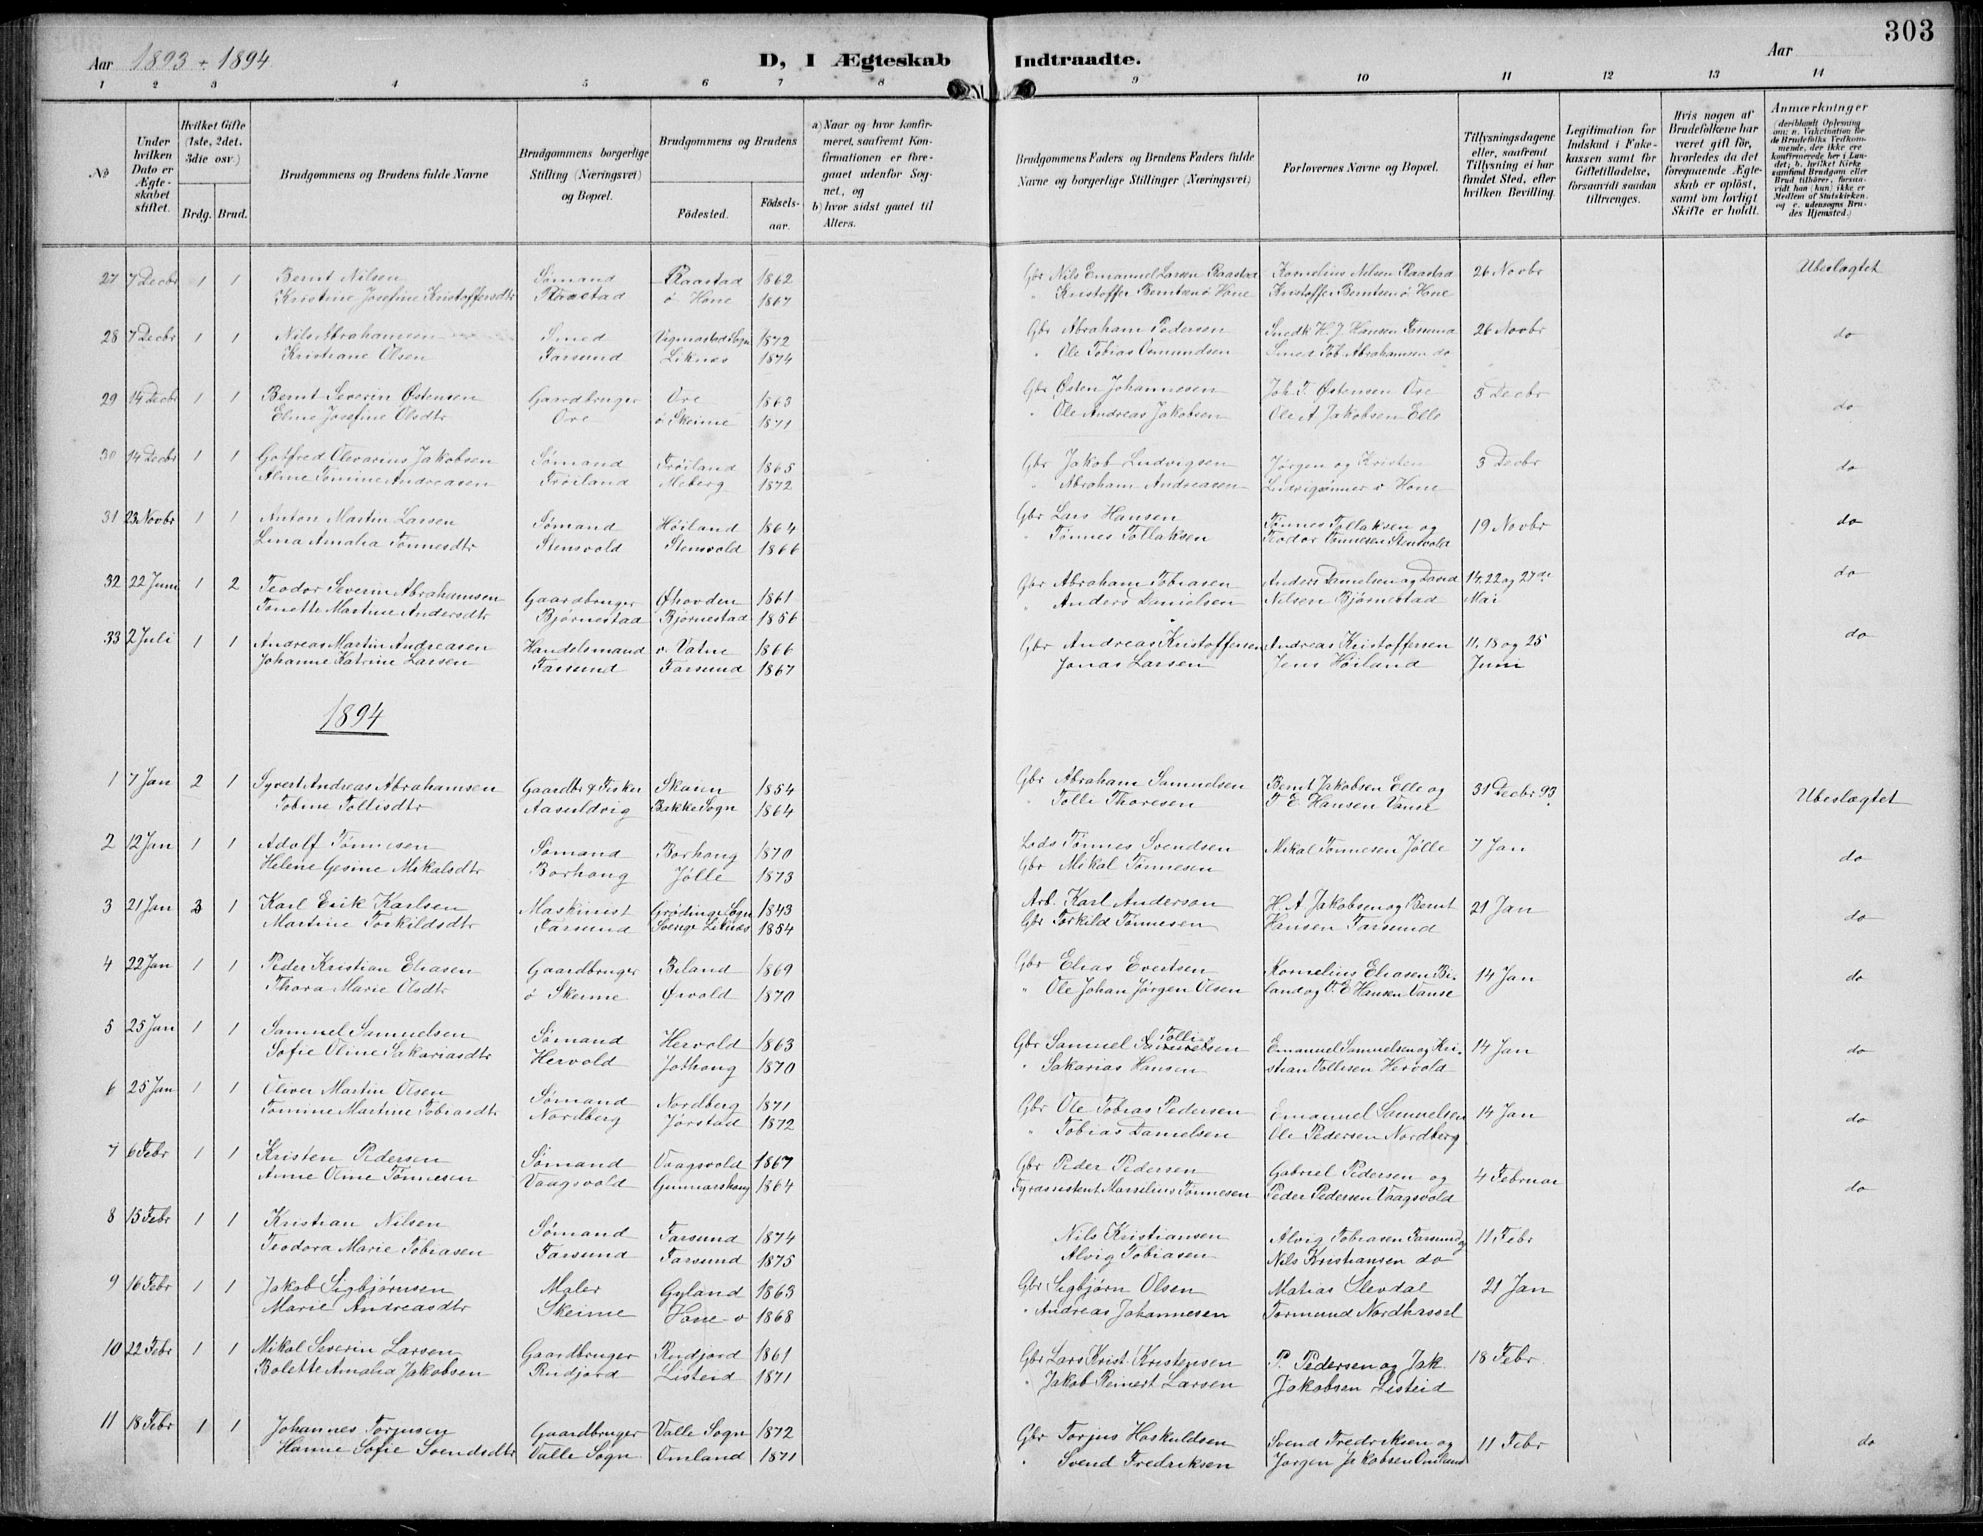 303
Aar 1893 + 1894
D, I Ægteskab Indtraadte.
Aar
1 2 3 4 5 6 7 8 9 10 11 12 13 14
No
Under hvilken Dato er Ægteskabet stiftet.
Hvilket Gifte (1ste, 2det, 3die osv.)
Brdg. Brud.
Brudgommens og Brudens fulde Navne
Brudgommens borgerlige Stilling (Næringsvei) og Bopæl.
Brudgommens og Brudens
Fødested.
Fødselsaar.
a) Naar og hvor konfirmeret, saafremt Konfirmationen er foregaaet udenfor Sognet, og
b) hvor sidst gaaet til Alters.
Brudgommens Faders og Brudens Faders fulde Navne og borgerlige Stillinger (Næringsvei)
Forlovernes Navne og Bopæl.
Tillysningsdagene eller, saafremt Tillysning ei har fundet Sted, efter hvilken Bevilling
Legitimation for Indskud i Fakekassen samt for Giftetilladelse, forsaavidt saadan tiltrænges.
Hvis nogen af Brudefolkene har været gift før, hvorledes da det foregaaende Ægteskab er opløst, samt om lovligt Skifte er holdt.
Anmærkninger
27 7 Decbr 1 1 Bernt Nilsen Sømand Raastad 1862 Gbr Nils Emanuel Larsen Raastad Kornelius Nilsen Raastad 26 Novbr Ubeslægtet
Kristine Josefine Kristoffersdtr Raastad ø Hone 1867 " Kristoffer Berntsen ø Hone Kristoffer Berntsen ø Hone
28 7 Decbr 1 1 Nils Abrahamsen Smed Vigmostad Sogn 1872 Gbr Abraham Pedersen Snedk H. J. Hansen Farsund 26 Novbr do
Kristiane Olsen Farsund Liknes 1874 " Ole Tobias Osmundsen Smed Tob. Abrahamsen do
29 14 Decbr 1 1 Bernt Severin Østensen Gaardbruger Ore 1863 Gbr Østen Johannesen Joh. T. Østensen Ore 3 Decbr do
Eline Josefine Olsdtr Ore ø Skeime 1871 " Ole Andreas Jakobsen Ole A Jakobsen Elle
30 14 Decbr 1 1 Gotfred Olevarius Jakobsen Sømand Frøiland 1865 Gbr Jakob Ludvigsen Jørgen og Kristen 3 Decbr do
Aline Tomine Andreasen Frøiland Meberg 1872 " Abraham Andreasen Ludvigsønner v Hone
31 23 Novbr 1 1 Anton Martin Larsen Sømand Høiland 1864 Gbr Lars Hansen Tønnes Tollaksen og 19 Novbr do
Lina Amalia Tønnesdtr Stensvold Stensvold 1866 " Tønnes Tollaksen Teodor Tønnesen Stensvold
32 22 Juni 1 2 Teodor Severin Abrahamsen Gaardbruger Øhovden 1861 Gbr Abraham Tobiasen Anders Danielsen og David 14, 22 og 27de do
Tonette Martine Andersdtr Bjørnestad Bjørnestad 1856 " Anders Danielsen Nilsen Bjørnestad Mai
33 2 Juli 1 1 Andreas Martin Andreasen Handelsmand v. Vatne 1866 Gbr Andreas Kristoffersen Andreas Kristoffersen 11, 18 og 25 do
Johanne Katrine Larsen Farsund Farsund 1867 Jonas Larsen Jens Høiland Juni
1894
1 7 Jan 2 1 Syvert Andreas Abrahamsen Gaardbr & Fisker Skarin 1854 Gbr Abraham Samuelsen Bernt Jakobsen Elle og 31 Decbr 93 Ubeslægtet
Tobine Tollisdtr Aaseldvig Bekke Sogn 1864 " Tolli Thoresen T E Hansen Vanse
2 12 Jan 1 1 Adolf Tønnesen Sømand Borhaug 1870 Lods Tønnes Svendsen Mikal Tønnesen Jølle 7 Jan do
Helene Gesine Mikalsdtr Borhaug Jølle 1873 Gbr Mikal Tønnesen
3 21 Jan 3 1 Karl Erik Karlsen Maskinist Grødinge Sogn 1843 Arb. Karl Anderson H. A. Jakobsen og Bernt 21 Jan do
Martine Torkildsdtr Farsund Svenge Liknes 1854 Gbr Torkild Tønnesen Hansen Farsund
4 22 Jan 1 1 Peder Kristian Eliasen Gaardbruger Biland 1869 Gbr Elias Evertsen Kornelius Eliasen Bi- 14 Jan do
Thora Marie Olsdtr ø Skeime Ørvold 1870 " Ole Johan Jørgen Olsen land og T. E Hansen Vanse
5 25 Jan 1 1 Samuel Samuelsen Sømand Hervold 1863 Gbr Samuel Tollis Samuelsen Emanuel Samuelsen og Kri- 14 Jan do
Sofie Oline Sakariasdtr Hervold Jothaug 1870 " Sakarias Hansen stian Tollisen Hervold
6 25 Jan 1 1 Oliver Martin Olsen Sømand Nordberg 1871 Gbr Ole Tobias Pedersen Emanuel Samuelsen 14 Jan do
Tomine Martine Tobiasdtr Nordberg Jørstad 1872 " Tobias Danielsen Ole Pedersen Nordberg
7 6 Febr 1 1 Kristen Pedersen Sømand Vaagsvold 1867 Gbr Peder Pedersen Gabriel Pedersen og 4 Februar do
Anne Oline Tønnesen Vaagsvold Gunnarshaug 1864 Fyrassistent Marselius Tønnesen Peder Pedersen Vaagsvold
8 15 Febr 1 1 Kristian Nilsen Sømand Farsund 1874 Nils Kristiansen Alvig Tobiasen Farsund og 11 Febr
Teodora Marie Tobiasen Farsund Farsund 1875 Alvig Tobiasen Nils Kristiansen do
9 16 Febr 1 1 Jakob Sigbjørnsen Maler Gyland 1863 Gbr Sigbjørn Olsen Matias Slevdal 21 Jan
Marie Andreasdtr Skeime Hone v 1868 " Andreas Johannesen Tormund Nordhassel
10 22 Febr 1 1 Mikal Severin Larsen Gaardbruger Rudjord 1861 Gbr Lars Krist. Kristensen P. Pedersen og Jak. 18 Febr
Bolette Amalia Jakobsen Rudjord Listeid 1871 " Jakob Reinert Larsen Jakobsen Listeid
11 18 Febr 1 1 Johannes Torjusen Gaardbruger Valle Sogn 1872 Gbr Torjus Haskuldsen Svend Fredriksen og 11 Febr do
Hanne Sofie Svendsdtr Valle Sogn Omland 1871 " Svend Fredriksen Jørgen Jakobsen Omland